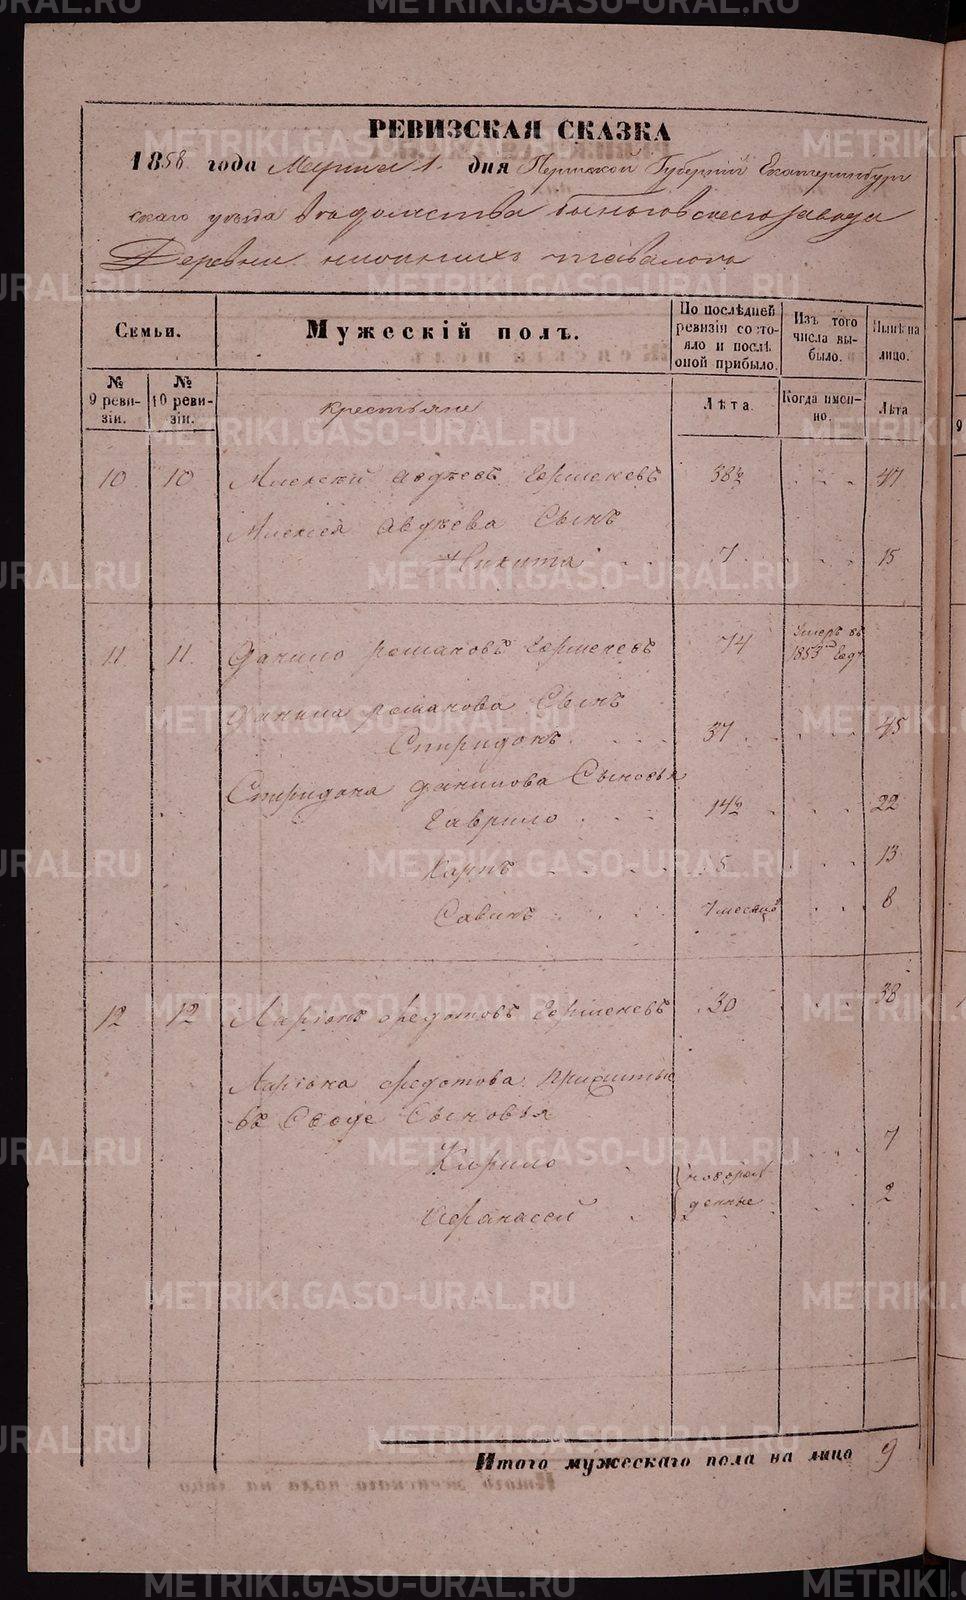 РЕВИЗСКАЯ СКАЗКА
1858 года Марта 1. дня Пермской Губернии Екатеринбург
скаго уезда ведомства Быньговскаго завода
Деревни нижнихъ тавологъ
Семьи.
Мужескій полъ.
По послѣдней ревизіи состо-
яло и послѣ оной прибыло.
Изъ того числа вы-
было.
Нынѣ на лицо.
№ 9 реви-
зіи.
№ 10 реви-
зіи.
крестьяне
Лѣта.
Когда имен-
но.
Лѣта
10 10 Алексѣй Авдѣевъ 38½ 47
Алексея Авдѣева Сынъ
Никита 7 15
11 11. Данило романовъ 74 Умеръ въ 1853мъ Году
Данила романова Сынъ
Спиридонъ 37 45
Спиридона данилова Сыновья
Гаврило 14½ 22
Карпъ 5 13
Савинъ 7 месяцъ 8
12 12 Ларіонъ Федотовъ 30 38
Ларіона Федотова прижитые
въ Сводѣ Сыновья
Кирило 7
новорож
денные
Афанасей 2
Итого мужескаго пола на лицо 9
METRIKI.GASO-URAL.RU